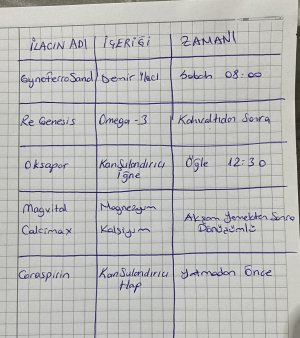 İLACIN ADI İÇERİĞİ ZAMANI
GynoferroSanol Demir İlacı Sabah 08:00
Re Genesis Omega-3 Kahvaltıdan Sonra
Oksapar Kan Sulandırıcı Öğle 12:30
İğne
Magvital Magnezyum Akşam Yemekten Sonra
Calcimax Kalsiyum Dönüşümlü
Coraspirin Kan Sulandırıcı Yatmadan Önce
Hap